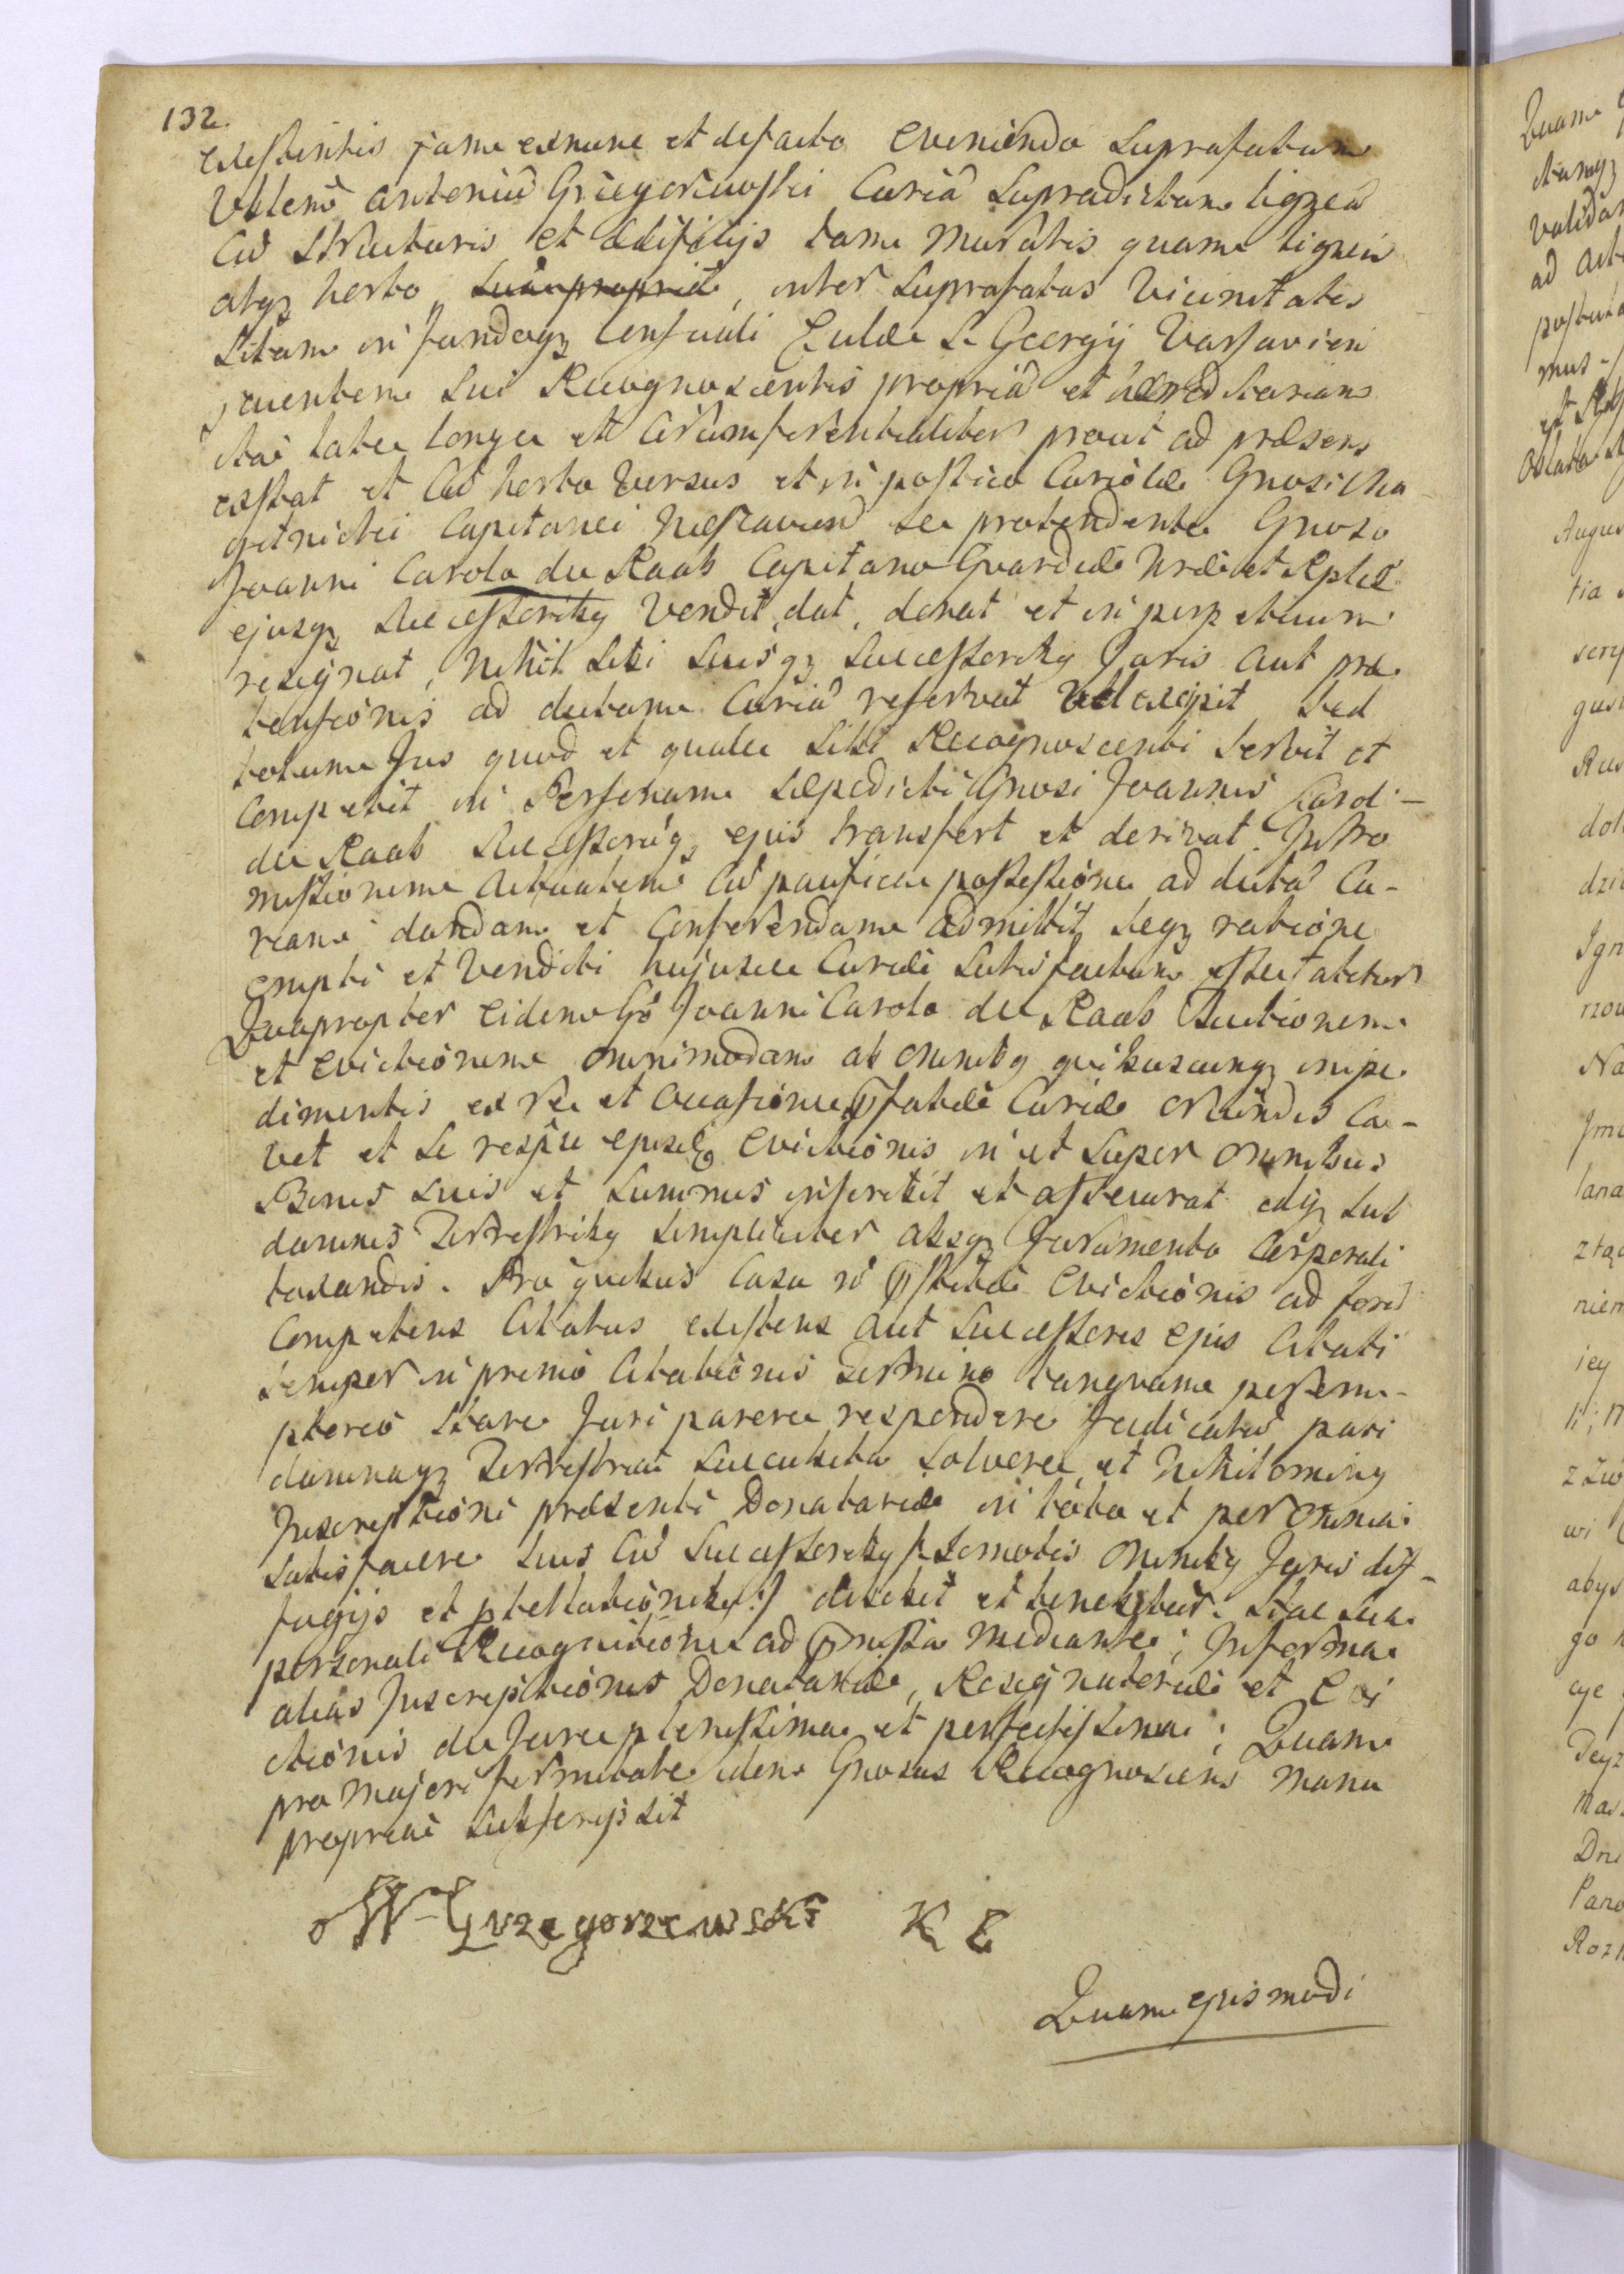 132.
existentis jam exnunc et defacto eveniendo Suprafatum
Antoniū Grzegorzewski Curiā Supradictam ligneā
Cū Structuris et Ædificijs tam Muratis quam ligneis
atqz horto Suâ propriâ, inter Suprafatas Vicinitates
Sitam in fundoqz Censuali Eccl̄æ S. Georgij Varsavien
Sui Recognoscentis propriā et hæreditariam
ita late longe et Circumferentialiter prout ad præsens
exstat et Cū horto versus et in postico Curiolæ Gnosi
Capitanei se protendente Gnoso
Joanni Carolo de Raab Capitaneo Guardiæ
ejusqz Successoribq Vendit, dat, donat et in perpetuum
resignat, Nihil Sibi Suisqz Successoribq Juris aut præ
tensionis ad dictam Curiā reservat vel excipit, Sed
totum Jus quod et quale Sibi Recognoscenti Servit et
Competit in Personam Sæpedicti Gnosi Joannis Caroli
de Raab Successorūqz ejus transfert et derivat. Intro
missionem Actualem Cū pacifica possessione ad dictā Cu-
riam dandam et Conferendam admittit, Seqz ratione
empti et Venditi hujusce Curiæ Satisfactum esse fatetur
Quapropter Eidem Gō Joanni Carolo de Raab Tuitionem
et Evictionem omnimodam ab omnibq quibuscunqz impe
dimentis ex Re et occasione p̄fatæ Curiæ oriundis Ca-
vet et Se respū ejusdē Evictionis in et Super omnibus
Bonis Suis et Summis inscribit et assecurat idqz Sub
damnis Terrestribq Simpliciter absqz Juramento Corporali
taxandis. Pro quibus Casu nō p̄stitæ Evictionis ad forū
Competens Citatus existens aut Successores ejus Citati
Semper in primo Citationis Termino tanquam perem-
ptorio Stare Juri parere respondere Judicatū pati
damnaqz Terrestria Succubita Solvere et Nihilominq
Inscriptioni præsenti Donatoriæ in toto et per omnia
Satisfacere Suis Cū Successoribq /: Semotis omnibq Juris dif-
fugijs et :/ debebit et tenebitur. Hac Sua
personali Recognitione ad p̄missa Mediante; In forma
alias Inscriptionis Donatoriæ, Resignatoriæ et Evi
ctionis de Jure plenissima et perfectissima; Quam
pro Majori firmitate idem Gnosus Recognoscens Manu
propria Subscripsit
Grzegorzewski
Quam ejusmodi
Quam
ad
mus
Augus
tia
gus
dol
Ign
Na
lana
niem
iey
abys
Dni